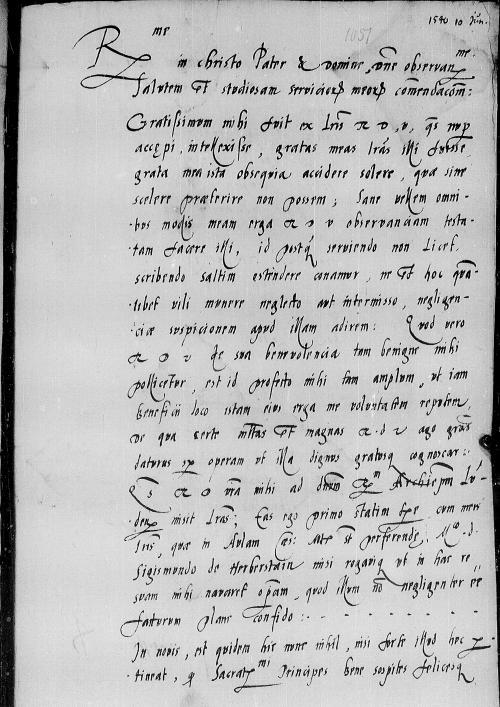 1540 10 Jun.
1051
R me
in christo Pater & Domine, dne observan me.
Salutem Et studiosam serviciorum meorum comendacom:
Gratissimum mihi fuit ex lris R D, V, qs nup
accepi, intellexisse, gratas meas lras illi fuisse,
grata mea ista obsequia accidere solere, quæ sine
scelere præterire non possem; Sane vellem omni-
-bus modis meam erga R D V observanciam testa-
-tam facere illi, id postq serviendo non Licet,
scribendo saltim ostendere conamur, ne Et hoc quan-
-tibet vili munere neglecto aut intermisso, negligen-
-ciæ suspicionem apud illam adirem: Quod vero
R D V de sua benevolencia tam benigne mihi
pollicetur, est id profecto mihi tam amplum, ut iam
beneficii loco istam eius erga me voluntatem reputem,
De qua certe multas Et magnas R. D V ago gras
daturus operam ut illa dignus gratusq cognoscar:.
Qs R D vra mihi ad dnum Archiepm Lu-
-den misit lras; Eas ego primo statim tpe cum meis
lris, quæ in Aulam Cæs: Mte st perferendæ, Mco. d.
Sigismundo de Herberstain misi rogaviq ut in hac re
suam mihi navaret opam, quod illum no negligenter
facturum plane confido:
In novis, est quidem hic nunc nihil, nisi forte illud hoc
tineat, q Sacrat mi Principes bene sospites felicesq